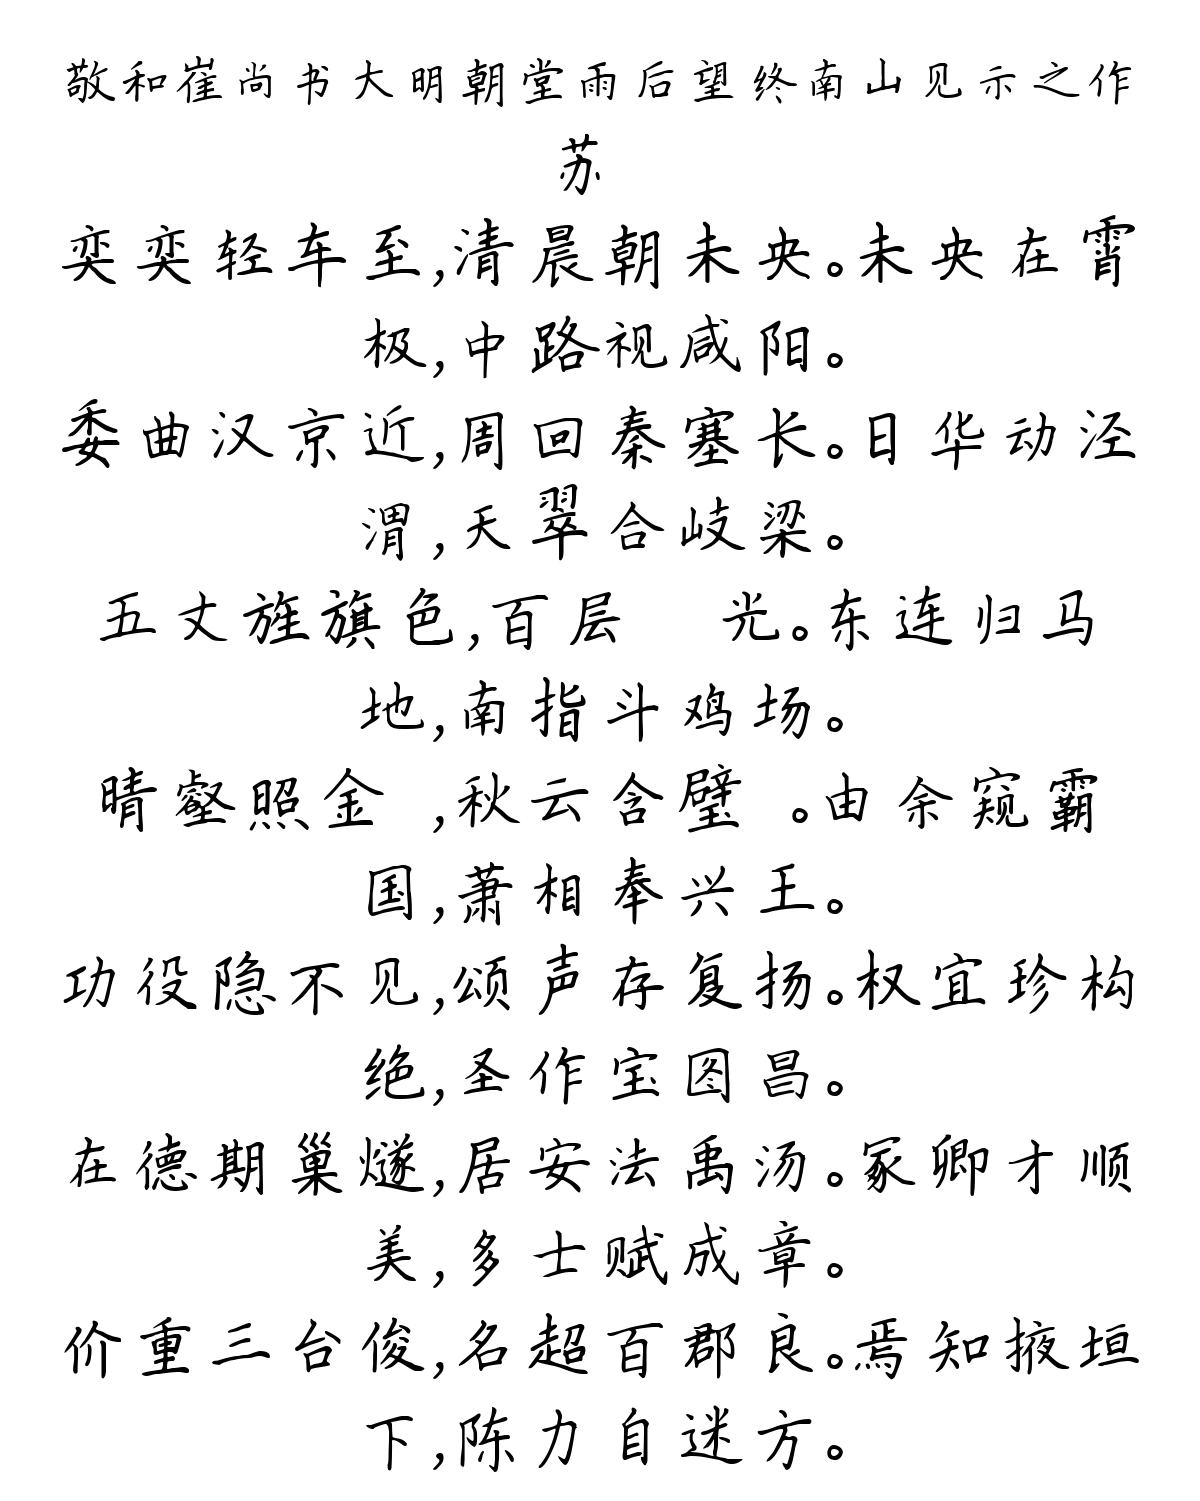 敬和崔尚书大明朝堂雨后望终南山见示之作
苏
奕奕轻车至,清晨朝未央。未央在霄
极,中路视咸阳。
委曲汉京近,周回秦塞长。日华动泾
渭,天翠合岐梁。
五丈旌旗色,百层 光。东连归马
地,南指斗鸡场。
晴壑照金 ,秋云含璧 。由余窥霸
国,萧相奉兴王。
功役隐不见,颂声存复扬。权宜珍构
绝,圣作宝图昌。
在德期巢燧,居安法禹汤。冢卿才顺
美,多士赋成章。
价重三台俊,名超百郡良。焉知掖垣
下,陈力自迷方。